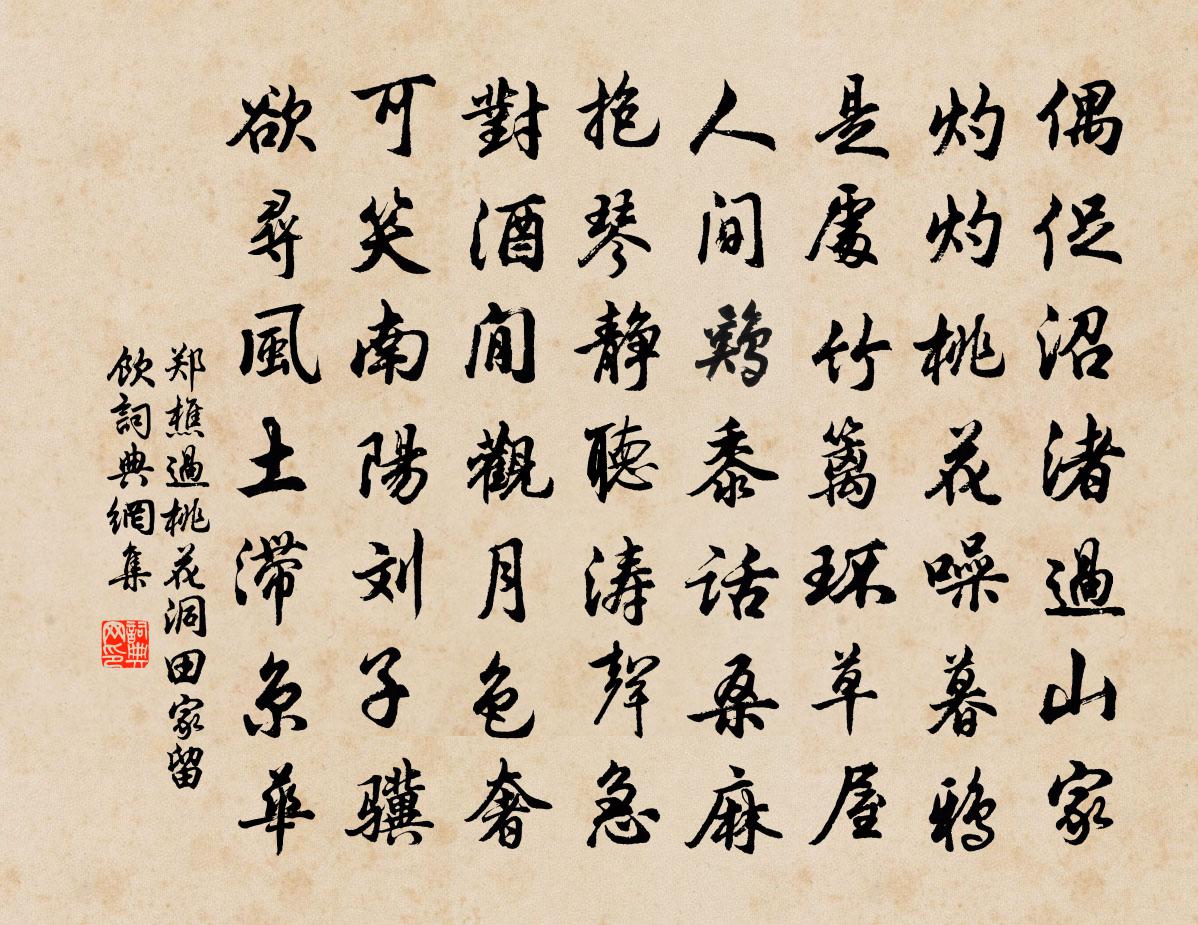 偶促沼渚過山家
灼灼桃花噪暮鴉
是處竹籬環草屋
人間鶏黍話桑麻
抱琴静聽濤聲急
對酒閒觀月色奢
可笑南陽刘子驥
欲尋風土滯京華
郑樵過桃花洞田家留
飲詞典網集
詞典
网印